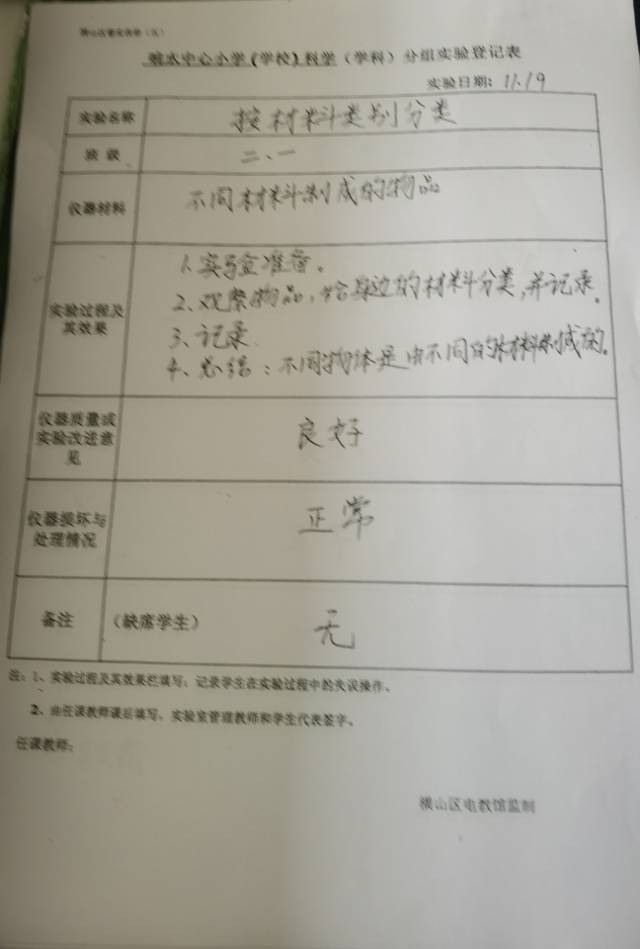 中心小学(学校)科学(学科)分组实验登记表
实验日期: 11.19
实验名称 按材料类别分类
班级 二、一
仪器材料 不同材料制成的物品
实验过程及其效果
1、实验准备。
2、观察物品,给身边的材料分类,并记录。
3、记录.
4、总结:不同物体是由不同的材料制成的。
仪器质量或
实验改进意
见
良好
仪器损坏与
处理情况
正常
备注 (缺席学生) 无
注:1、实验过程及其效果栏填写:记录学生在实验过程中的失误操作。
2、由任课教师课后填写、实验室管理教师和学生代表签字。
任课教师:
横山区电教馆监制